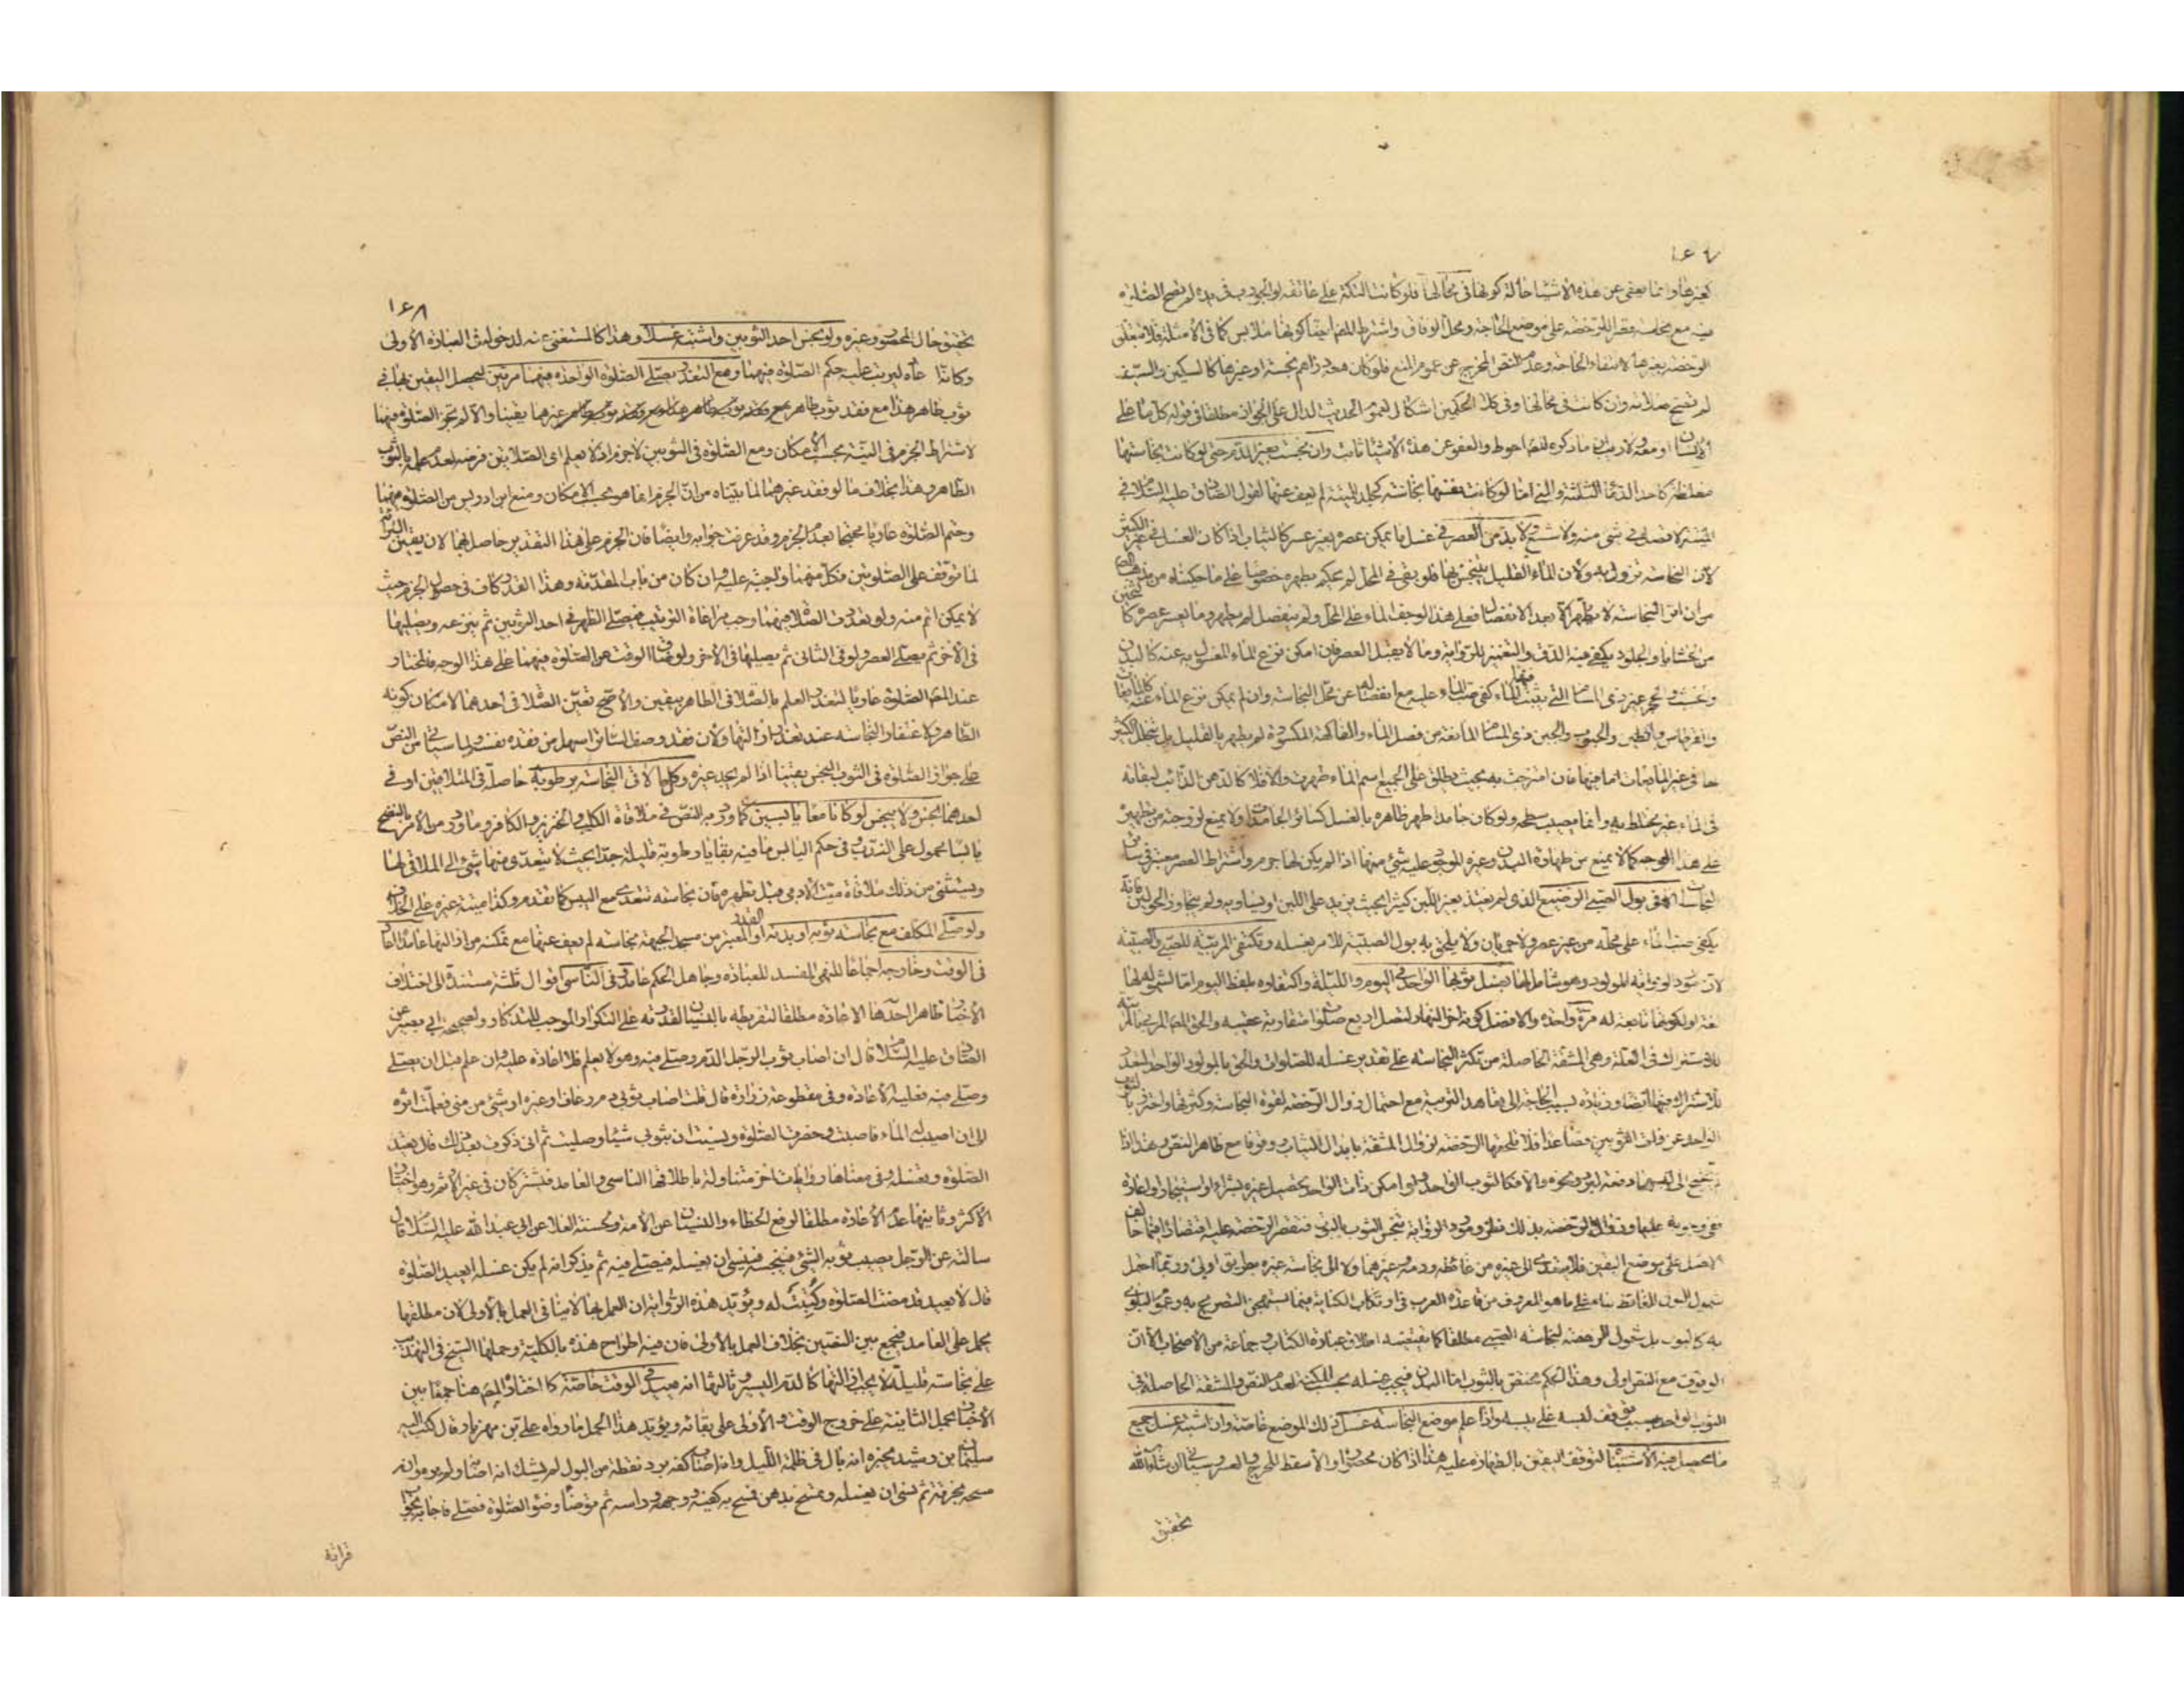 ١٦٧
كغيرها وانما يعفى عن هذه الاشياء حالة كونها في محالها فلو كانت التكة على عاتقه او الجورب في يده لم تصح الصلوة
فيه مع نجاسته قصرا للرخصة على موضع الحاجة ومحل الوفاق واشترط المصـ ايضا كونها ملابس كما في الامثلة فلا يتعلق
الرخصة بغيرها لانتفاء الحاجة وعدم النص المخرج عن عموم المنع فلو كان معه دراهم نجسة او غيرها كالسكين والسيف
لم تصح صلاته وان كانت في محالها وفي كلا الحكمين اشكال لعموم الحديث الدال على الجواز مطلقا في قوله كل ما على
الانسان او معه ولا ريب ان ما ذكره المصـ احوط والعفو عن هذه الاشياء ثابت وان نجست بغير الدم حتى لو كانت نجاستها
مغلظة كاحد الدماء الثلثة والمني اما لو كانت نفسها نجاسة كجلد الميتة لم يعف عنها لقول الصادق عليه السلام في
الميتة لا تصل في شئ منه ولا شسع ولا بد من العصر في غسل ما يمكن عصره بغير عسر كالثياب اذا كان الغسل في غير الكثير
لان النجاسة تزول به ولان الماء القليل ينجس بها فلو بقي في المحل لم يحكم بطهره خصوصا على ما حكيناه من مذهب المصـ
من ان اثر النجاسة لا يظهر الا بعد الانفصال فعلى هذا لو جف الماء على المحل ولم ينفصل لم يطهر وما يعسر عصره كا
من الحشايا والجلود يكفي فيه الدق والتغميز للرواية وما لا يقبل العصر فان امكن نزع الماء المغسول به عنه كالبدن
والخشب والحجر غير ذي المسام التي يثبت فيها الماء كفى صب الماء عليه مع انفصاله عن محل النجاسة وان لم يمكن نزع الماء عنه كالمايعات
والقرطاس والطين والحبوب والجبن ذي المسام المانعة من فصل الماء والفاكهة المكسورة لم يطهر بالقليل بل بتخلل الكثير
لها في غير المايعات اما فيها فان امتزجت به بحيث يطلق على الجميع اسم الماء طهرت والا فلا كالدهن الذائب لبقائه
في الماء غير مختلط به وانما يصيب سطحه ولو كان جامدا طهر ظاهره بالغسل كسائر الجامدات ولا يمنع لزوجته من تطهيره
على هذا الوجه كما لا يمنع من طهارة البدن وغيره الموجود عليه شئ منها اذا لم يكن لها جرم واشتراط العصر معتبر في سائر
النجاسات الا في بول الصبي الرضيع الذي لم يغتذ بغير اللبن كثيرا بحيث يزيد على اللبن او يساويه ولم يتجاوز الحولين فانه
يكفي صب الماء على محله من غير عصر ولا جريان ولا يلحق به بول الصبية للامر بغسله وتكتفي المربية للصبي والصبية
لان مورد الرواية المولود وهو شامل لهما بغسل ثوبها الواحد في اليوم والليلة واكتفاؤه بلفظ اليوم اما لشموله لها
لغة او لكونها تابعة له مرة واحدة والافضل كونه اخر النهار لتصل اربع صلوات متقاربة عقيبه والحق المصـ المربي بالمربية
للاشتراك في العلة وهي المشقة الحاصلة من تكثر النجاسة على تقدير غسله للصلوات والحق بالمولود الواحد المتعدد
للاشتراك فيها ايضا وزيادة بسبب الحاجة الى تعاهد التربية مع احتمال زوال الرخصة لقوة النجاسة وكثرتها واحترز بالثوب
الواحد عن ذات الثوبين فصاعدا فلا تلحقها الرخصة لزوال المشقة بابدال الثياب ووقوفا مع ظاهر النص هذا اذا
لم تحتج الى لبسهما دفعة لبرد ونحوه والا فكالثوب الواحد ولو امكن ذات الواحد تحصيل غيره بشراء او استيجار او اعارة
ففي وجوبه عليها وزوال الرخصة بذلك نظر ومورد الرواية تنجس الثوب بالبول فتقصر الرخصة عليه اقتصارا فيما خالف
الاصل على موضع اليقين فلا يتعدى الى غيره من غائطه ودمه وغيرهما ولا الى نجاسة غيره بطريق اولى وربما احتمل
شمول البول للغائط بناء على ما هو المعروف من قاعدة العرب في ارتكاب الكناية فيما يستهجن التصريح به وعموم البلوى
به كالبول بل شمول الرخصة لنجاسة الصبي مطلقا كما يقتضيه اطلاق عبارة الكتاب وجماعة من الاصحاب الا ان
الوقوف مع النص اولى وهذا الحكم مختص بالثوب اما البدن فيجب غسله بحسب المكنة لعدم النص والمشقة الحاصلة في
الثوب الواحد بسبب توقف لبسه على يبسه واذا علم موضع النجاسة غسل ذلك الموضع خاصة وان اشتبه غسل جميع
ما يحصل فيه الاشتباه لتوقف اليقين بالطهارة عليه هذا اذا كان محصورا والا سقط للحرج والعسر وسياتي ان شاء الله
تحقيق
١٦٨
تحقيق حال المحصور وغيره ولو نجس احد الثوبين واشتبه غسلا وهذا كالمستغنى عنه لدخوله في العبارة الاولى
وكانه اعاده ليرتب عليه حكم الصلوة فيهما ومع التعذر يصلي الصلوة الواحدة فيهما مرتين لتحصل اليقين بها في
ثوب طاهر هذا مع فقد ثوب طاهر غيرهما يقينا والا لم تجز الصلوة فيهما
لاشتراط الجزم في النية بحسب الامكان ومع الصلوة في الثوبين لا جزم اذ لا يعلم اي الصلاتين فرضه لعدم علمه بالثوب
الطاهر وهذا بخلاف ما لو فقد غيرهما لما بيناه من ان الجزم انما هو بحسب الامكان ومنع ابن ادريس من الصلوة فيهما
وحتم الصلوة عاريا محتجا بعدم الجزم وقد عرفت جوابه وايضا فان الجزم على هذا التقدير حاصل فيهما لان يقين البرائة
لما توقف على الصلوتين فكل منهما واجبة عليه وان كان من باب المقدمة وهذا القدر كاف في حصول الجزم حيث
لا يمكن اتم منه ولو تعددت الصلاة فيهما وجب مراعاة الترتيب فيصلي الظهر في احد الثوبين ثم ينزعه ويصليها
في الاخر ثم يصلي العصر ولو في الثاني ثم يصليها في الاخر ولو ضاق الوقت عن الصلوة فيهما على هذا الوجه فالمختار
عند المصـ الصلوة عاريا لتعذر العلم بالصلاة في الطاهر بيقين والاصح تعين الصلاة في احدهما لامكان كونه
الطاهر ولاغتفار النجاسة عند تعذر ازالتها ولان فقد وصف الساتر اسهل من فقده نفسه ولما سياتي من النص
على جواز الصلوة في الثوب النجس يقينا اذا لم يجد غيره وكل ما لاقى النجاسة برطوبة حاصلة في المتلاقيين او في
احدهما نجس ولا ينجس لو كانا معا يابسين كما ورد به النص في ملاقاة الكلب والخنزير والكافر وما ورد من الامر بالنضح
يابسا محمول على الندب وفي حكم اليابس ما فيه بقايا رطوبة قليلة جدا بحيث لا يتعدى منها شئ الى الملاقى لها
ويستثنى من ذلك ملاقاة ميت الادمي قبل تطهيره فان نجاسته تتعدى مع اليبس كما تقدم وكذا ميتة غيره على الخلاف
ولو صلى المكلف مع نجاسة ثوبه او بدنه او القدر المعتبر من مسجد الجبهة نجاسة لم يعف عنها مع تمكنه من ازالتها عامدا اعاد
في الوقت وخارجه اجماعا للنهي المفسد للعبادة وجاهل الحكم عامد وفي الناسي اقوال ثلثة مستندة الى اختلاف
الاخبار ظاهرا احدها الاعادة مطلقا لتفريطه بالنسيان لقدرته على التكرار الموجب للتذكار ولصحيحة ابي بصير عن
الصادق عليه السلام قال ان اصاب ثوب الرجل الدم وصلى فيه وهو لا يعلم فلا اعادة عليه وان علم قبل ان يصلي
وصلى فيه فعليه الاعادة وفي مقطوعة زرارة قال قلت اصاب ثوبي دم رعاف او غيره او شئ من مني فعلمت اثره
الى ان اصيب له الماء فاصبت وحضرت الصلوة ونسيت ان بثوبي شيئا وصليت ثم اني ذكرت بعد ذلك قال تعيد
الصلوة وتغسله وفي معناها روايات اخر متناولة باطلاقها الناسي والعامد فيشتركان في غير الاثم وهو اختيار
الاكثر وثانيها عدم الاعادة مطلقا لرفع الخطاء والنسيان عن الامة ولحسنة العلاء عن ابي عبد الله عليه السلام قال
سالته عن الرجل يصيب ثوبه الشئ فينجسه فينسى ان يغسله فيصلي فيه ثم يذكر انه لم يكن غسله ايعيد الصلوة
قال لا يعيد قد مضت الصلوة وكتبت له ويؤيد هذه الرواية ان العمل بها لا ينافي العمل بالاولى لان مطلقها
يحمل على العامد فيجمع بين النصين بخلاف العمل بالاولى فان فيه اطراح هذه بالكلية وحملها الشيخ في التهذيب
على نجاسة قليلة لا يجب ازالتها كالدم اليسير وثالثها انه يعيد في الوقت خاصة كما اختاره المصـ هنا جمعا بين
الاخبار بحمل الثانية على خروج الوقت والاولى على بقائه ويؤيد هذا الحمل ما رواه علي بن مهزيار قال كتب اليه
سليمان بن رشيد يخبره انه بال في ظلمة الليل وانه اصاب كفه برد نقطة من البول لم يشك انه اصابه ولم يره وانه
مسحه بخرقة ثم نسي ان يغسله وتمسح بدهن فمسح به كفيه ووجهه وراسه ثم توضأ وضوء الصلوة فصلى فاجابه بجواب
قرائة